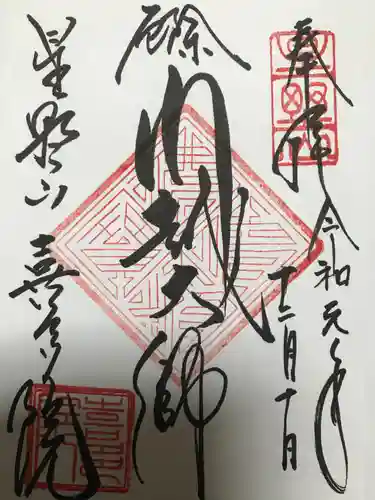 奉拝
令和元年
十二月十日
厄除
川越大師
星野山
喜多院